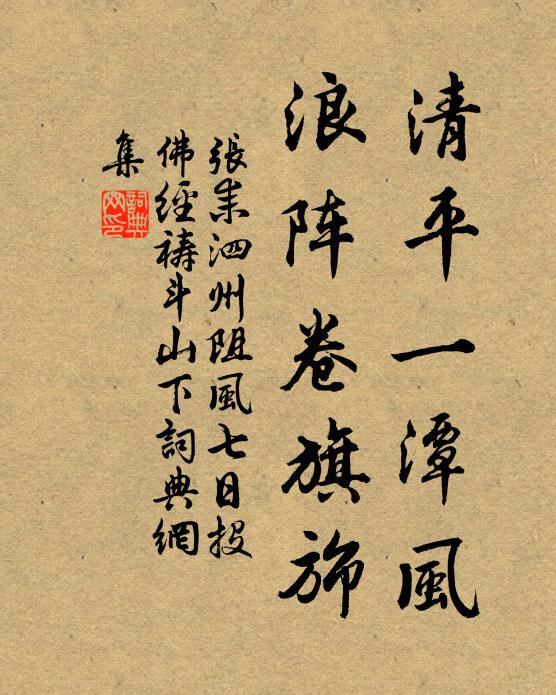 清平一潭風
浪阵卷旗旆
張耒泗州阻風七日投
佛經禱斗山下詞典網
集
詞典
网印